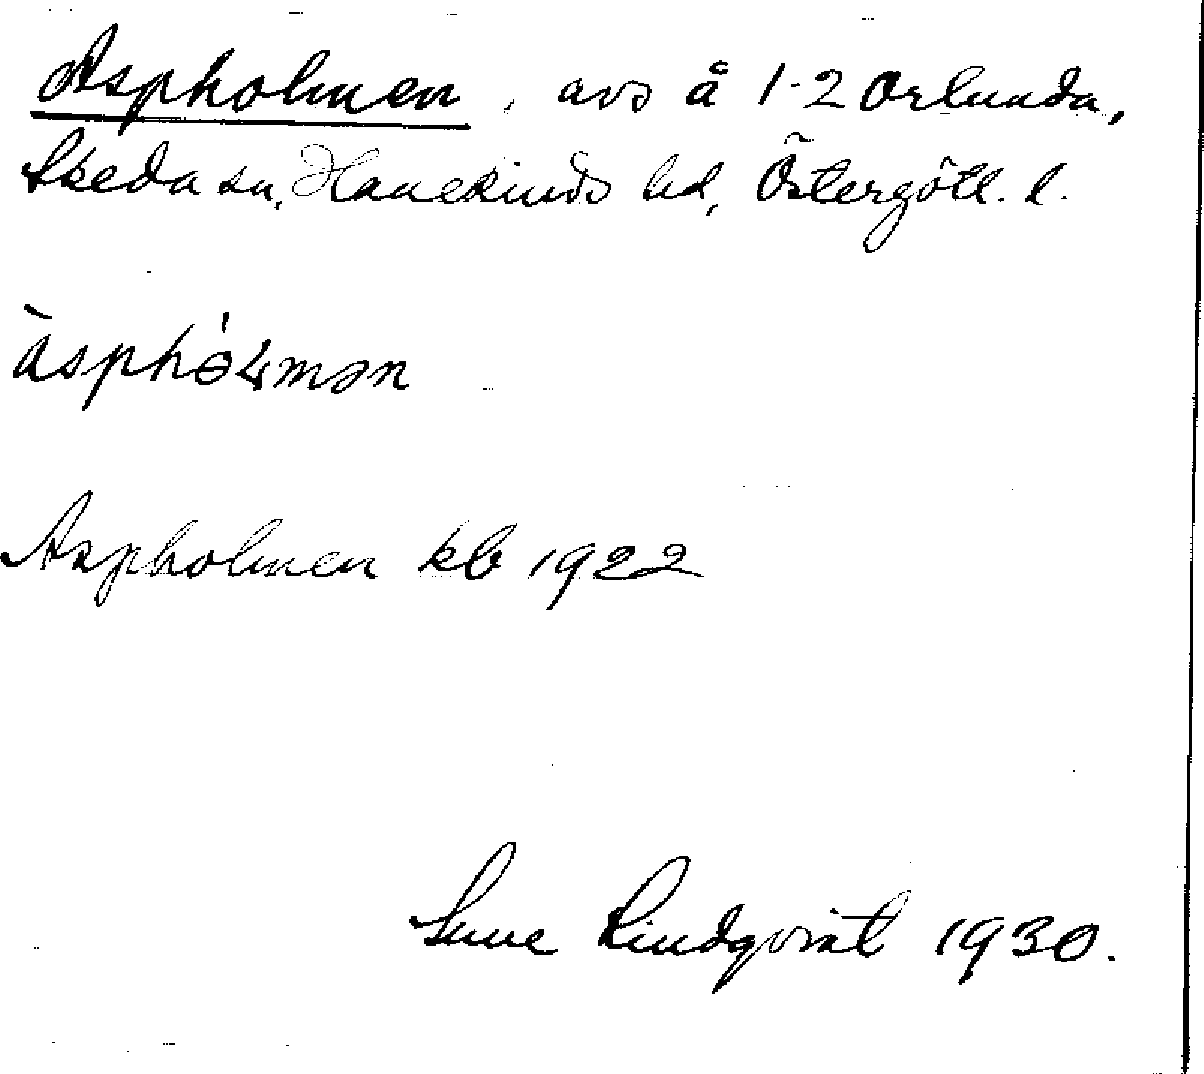 Aspholmen, avs å 1-2 Orlunda,
Skeda sn, Hanekinds hd, Östergötl. l.
Aspholmen kb 1922
Sune Lindqvist 1930.